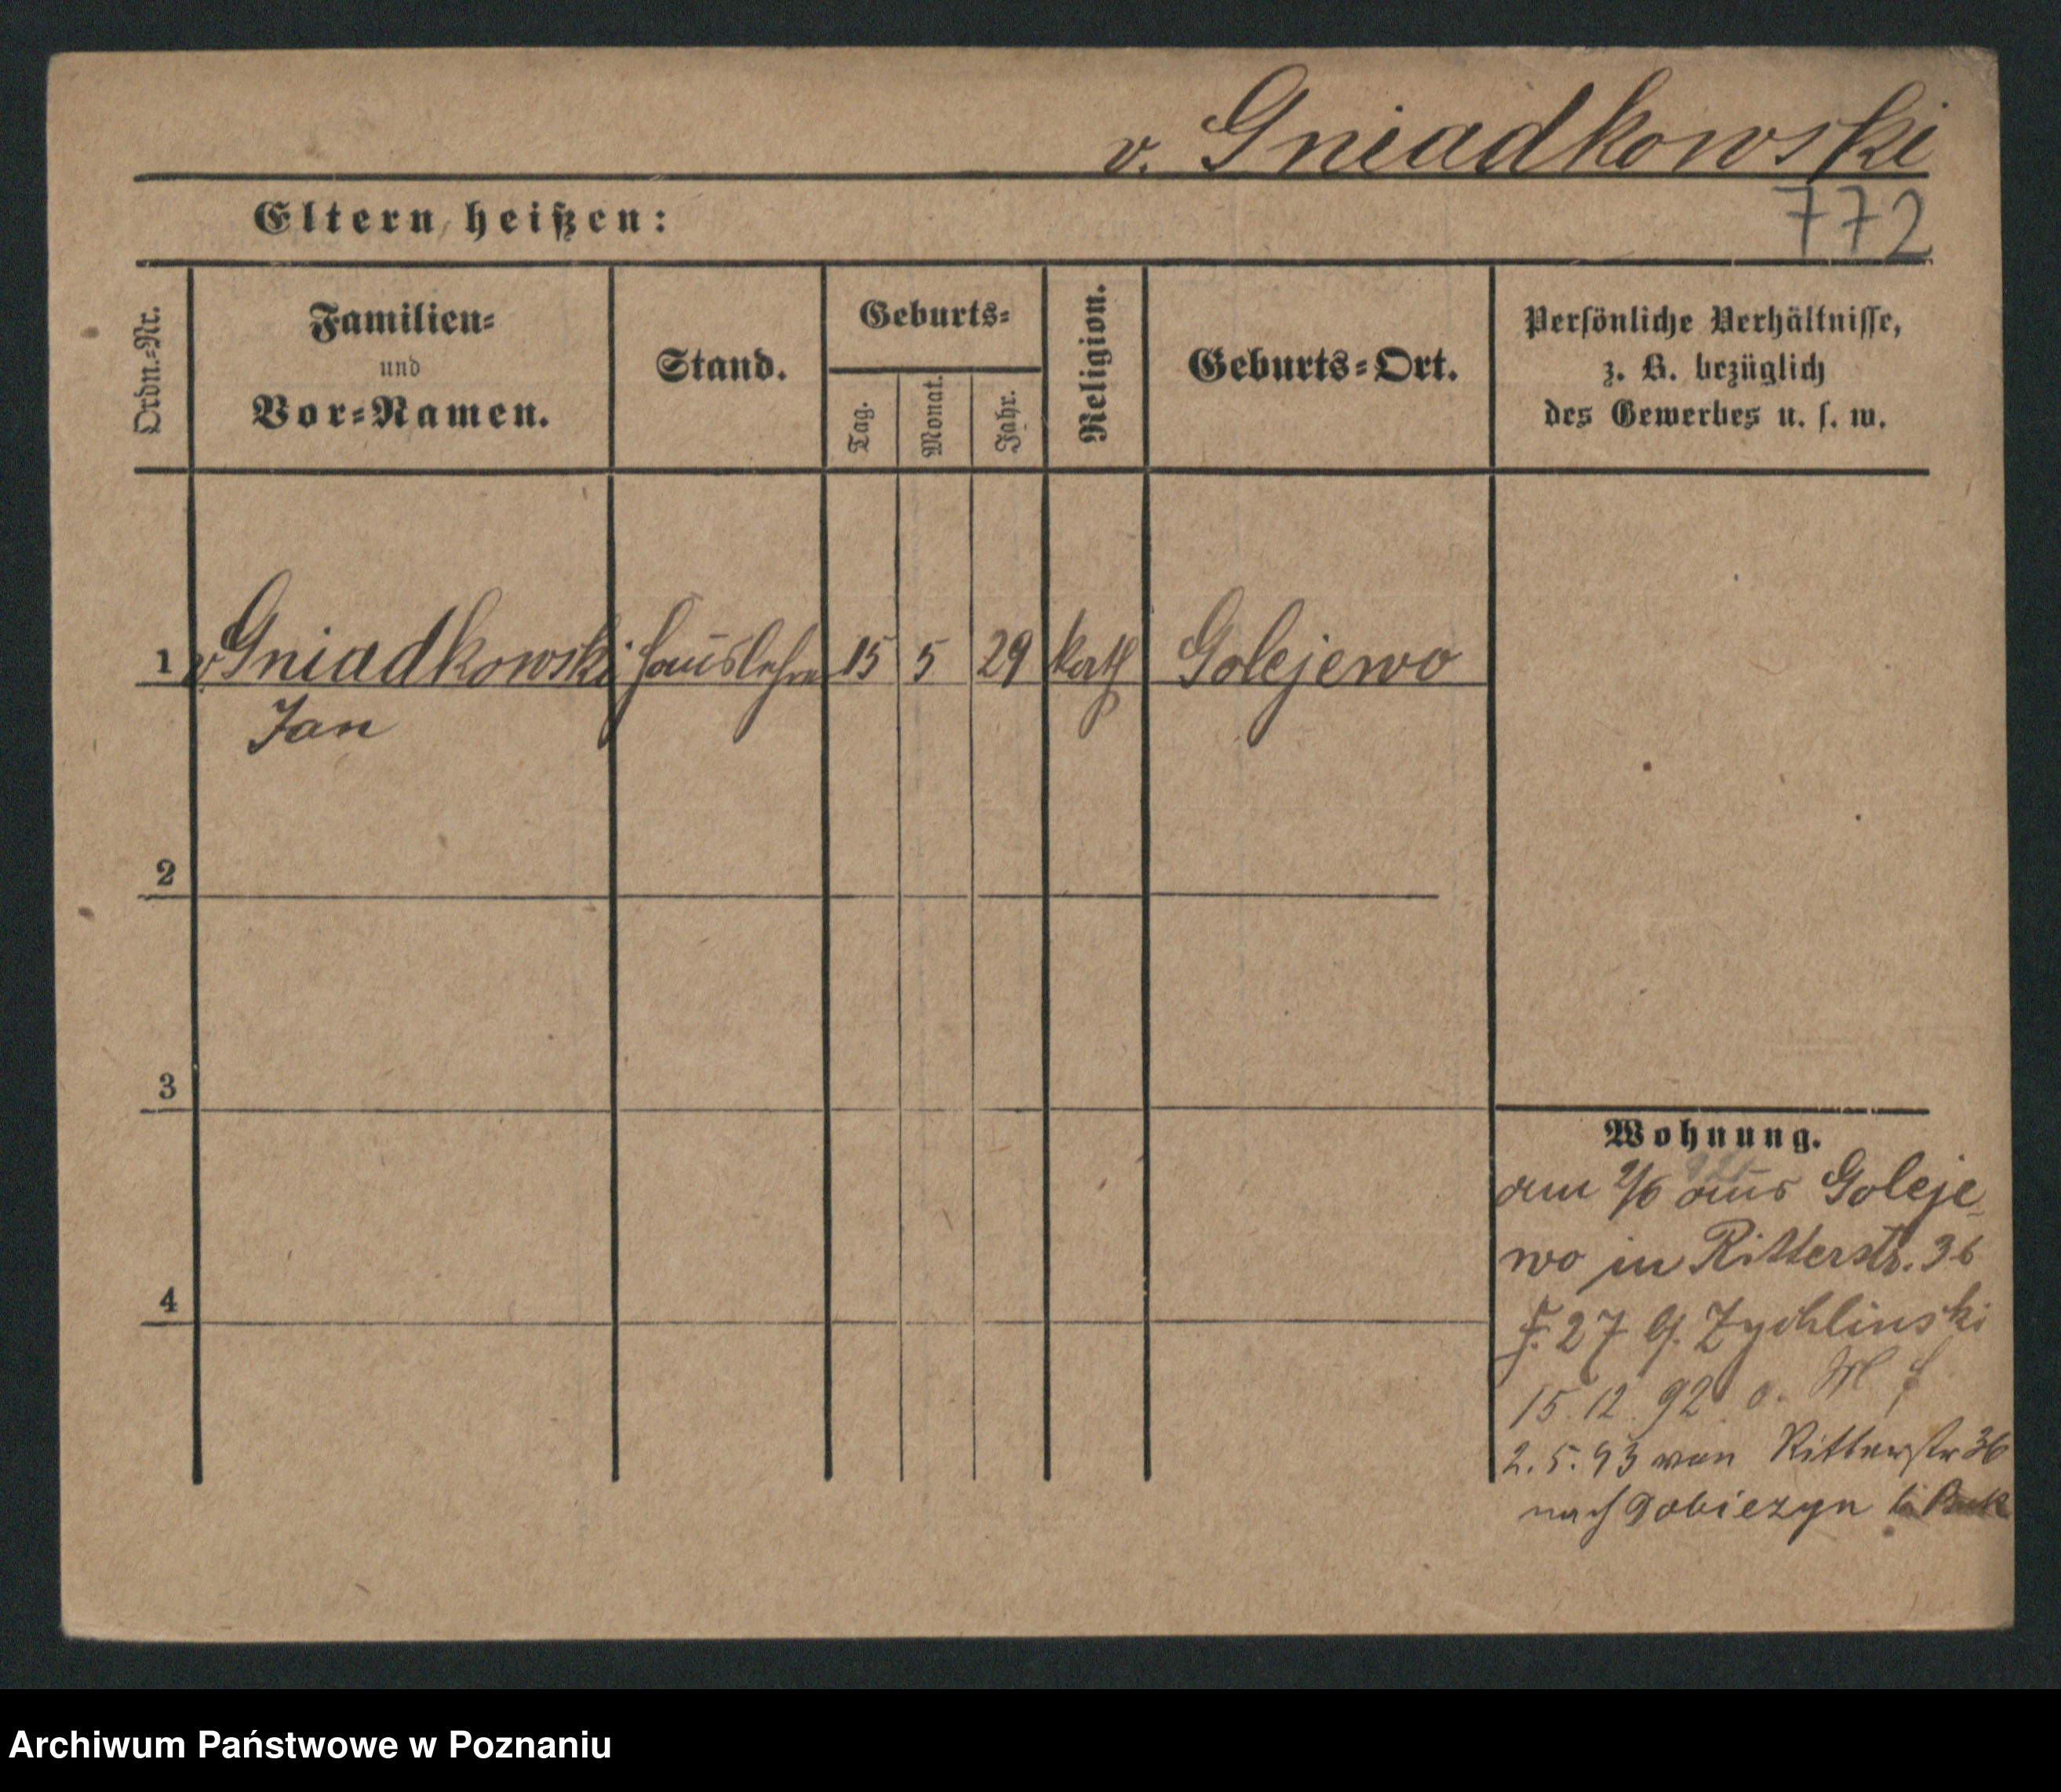 v. Gniadkowski
772
Eltern heißen:
Ordn.-Nr.
Familien-
und
Vor-Namen.
Stand.
Geburts-
Tag.
Monat.
Jahr.
Religion.
Geburts-Ort.
Persönliche Verhältnisse,
z. B. bezüglich
des Gewerbes u. s. w.
1 v Gniadkowski Hauslehrer 15 5 29 kath Golejewo
Jan
2
3
4
Wohnung.
am 2/6 aus Goleje-
wo in Ritterstr. 36
27 Zychlinski
15. 12. 92
2. 5. 93 von Ritterstr 36
nach Dobiezyn b Buk
Archiwum Państwowe w Poznaniu